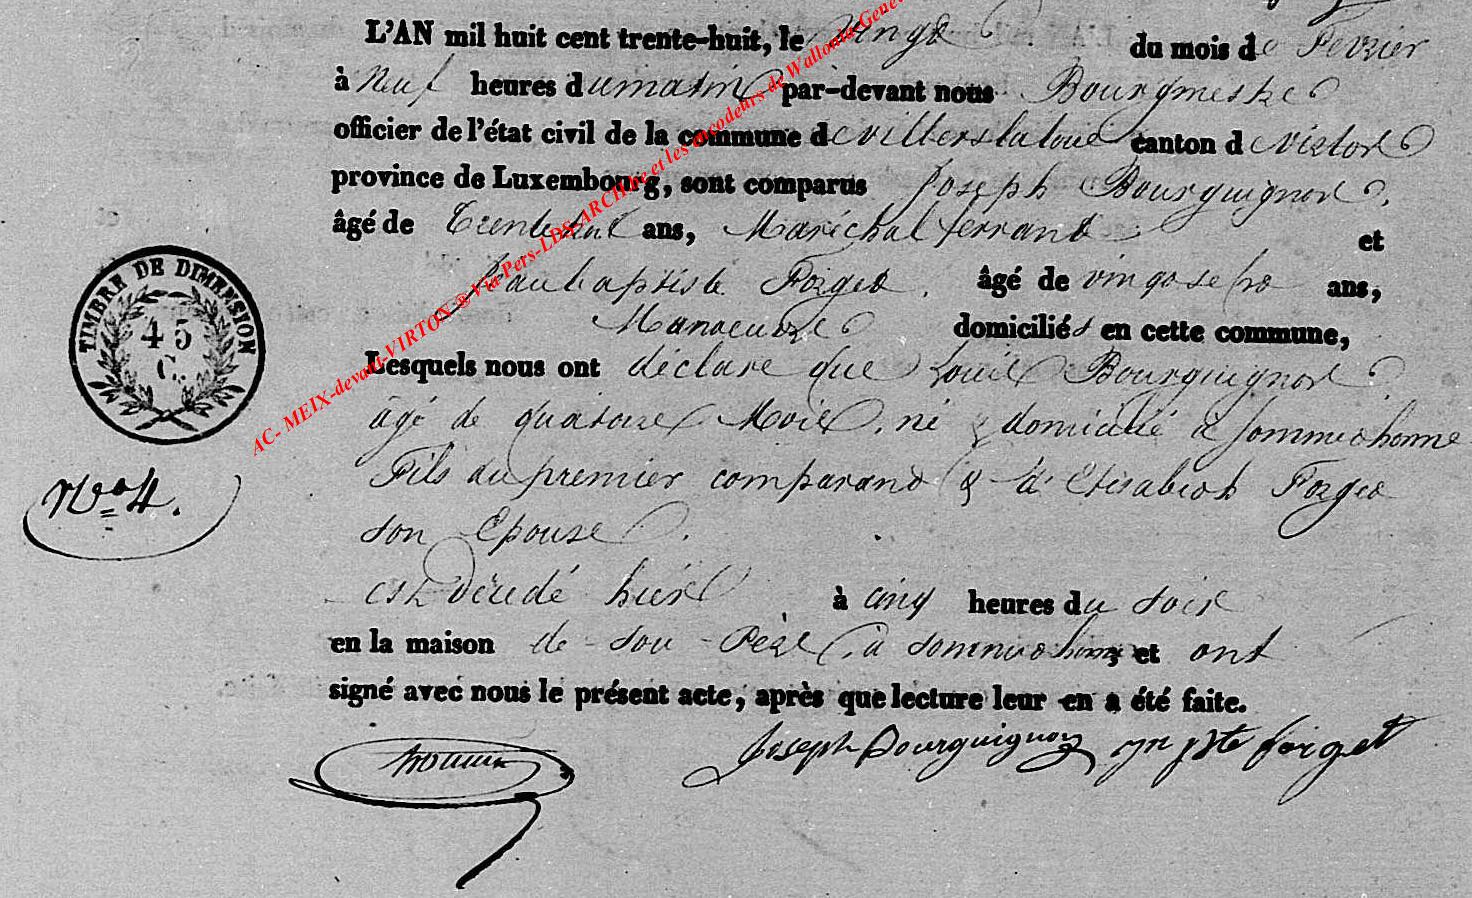 L'AN mil huit cent trente-huit, le vingt du mois de Fevrier
à Neuf heures du matin par-devant nous Bourgmestre
officier de l'état civil de la commune de villerslaloue canton de virton
province de Luxembourg, sont comparus Joseph Bourguignon,
âgé de Trente ans, Maréchal ferrant et
Jean baptiste Forget, âgé de vingt sept ans,
Manoeuvre domiciliés en cette commune,
Lesquels nous ont déclaré que Louis Bourguignon
âgé de quatorze Mois, né & domicilié à Sommethonne
Fils du premier comparant & d'Elisabeth Forget
son Epouse.
est décédé hier à cinq heures du soir
en la maison de son Père, à Sommethonne, et ont
signé avec nous le présent acte, après que lecture leur en a été faite.
Joseph Bourguignon jn pte forget
TIMBRE DE DIMENSION
45
C.
N° 4.
AC- MEIX-devant-VIRTON ® Via Pers-LDS-ARCH.be et les encodeurs de Wallonia-Gene